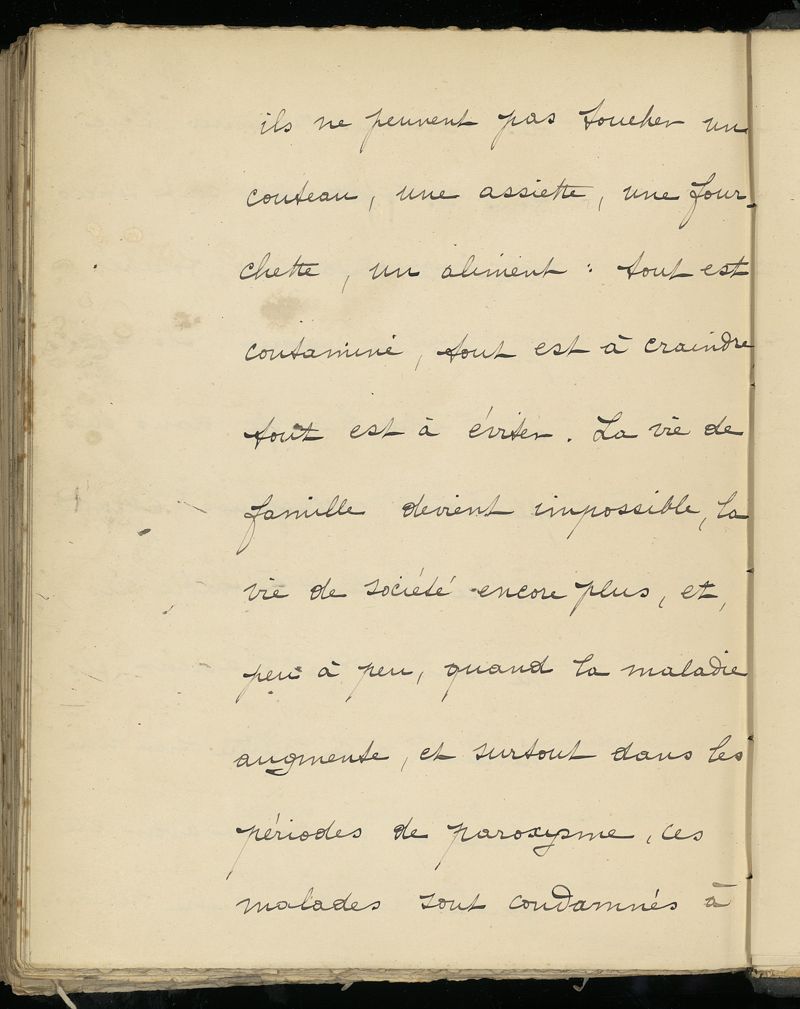 ils ne peuvent pas toucher un
couteau, une assiette, une four-
chette, un aliment : tout est
contaminé, tout est à craindre
tout est à éviter. La vie de
famille devient impossible, la
vie de société encore plus, et,
peu à peu, quand la maladie
augmente, et surtout dans les
périodes de paroxysme, ces
malades sont condamnés à